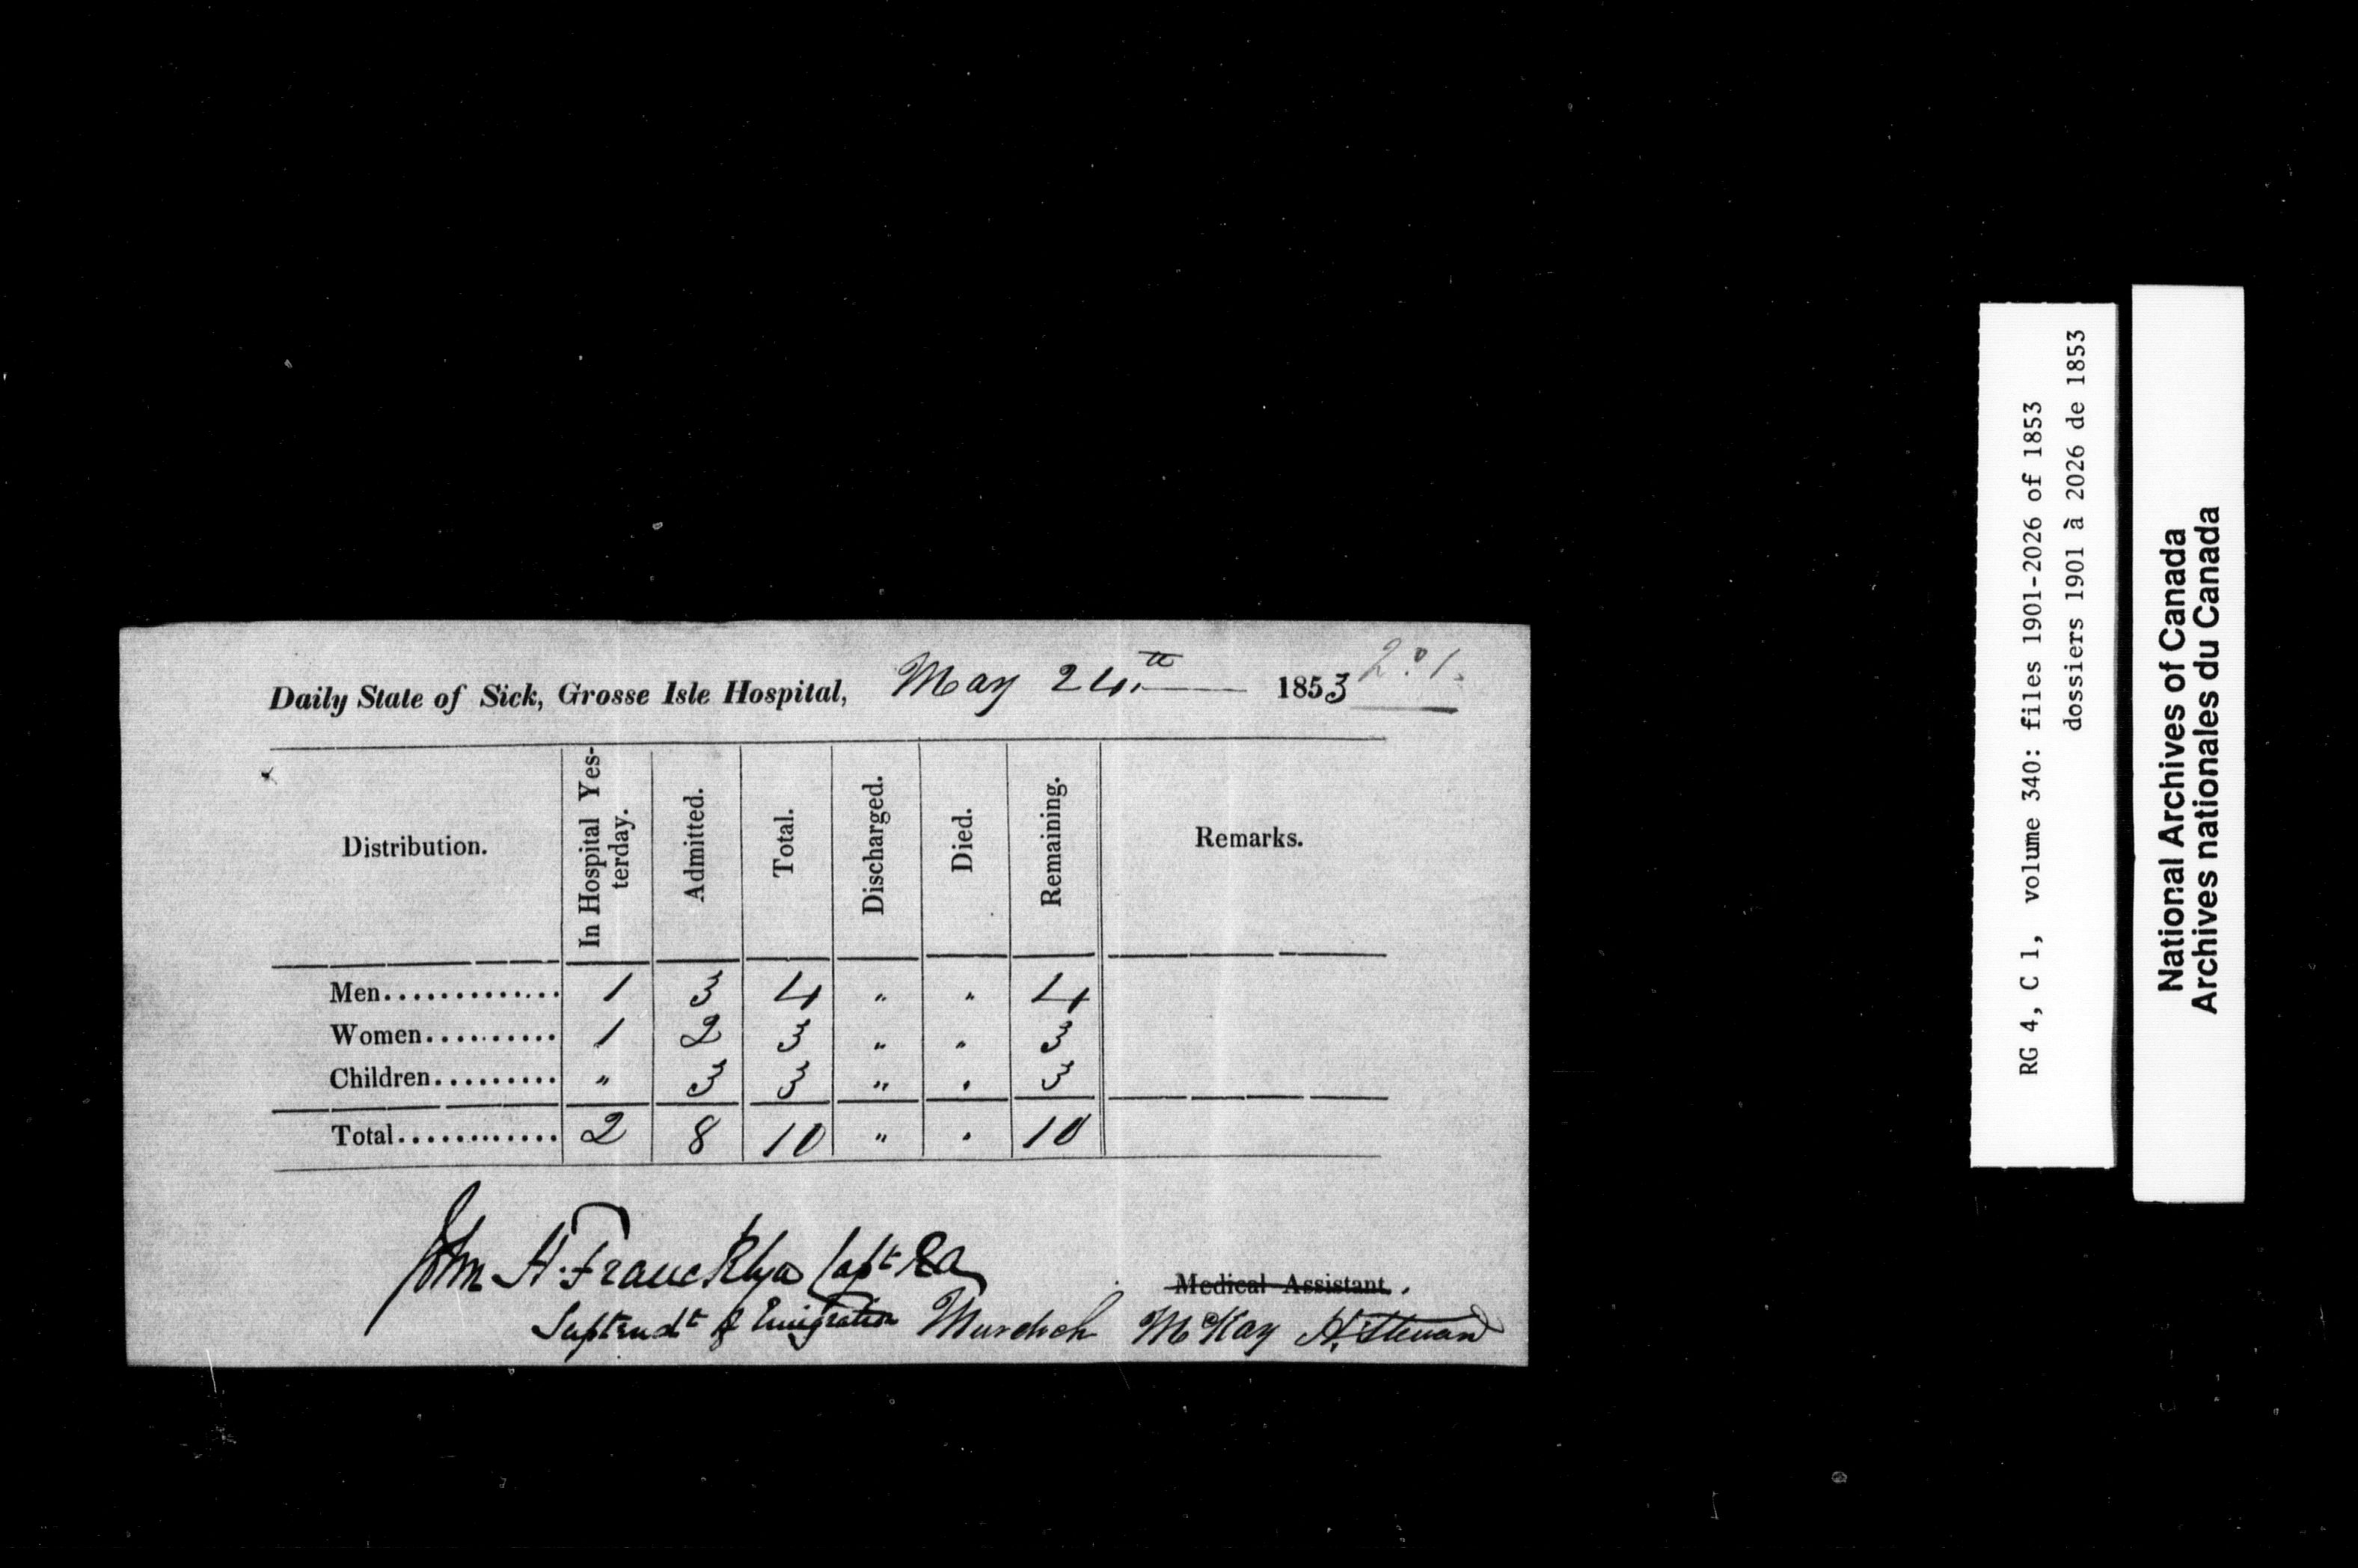 Daily State of Sick, Grosse Isle Hospital, May 24th 1853
Distribution. In Hospital Yes-terday. Admitted. Total. Discharged. Died. Remaining. Remarks.
Men............. 1 3 4 " " 4
Women.......... 1 2 3 " " 3
Children......... " 3 3 " . 3
Total............ 2 8 10 " . 10
John H. Francklyn Capt RA
Medical Assistant.
Suptendt of Emigration Murdoch McKay H. Steward
RG 4, C 1, volume 340: files 1901-2026 of 1853
dossiers 1901 à 2026 de 1853
National Archives of Canada
Archives nationales du Canada